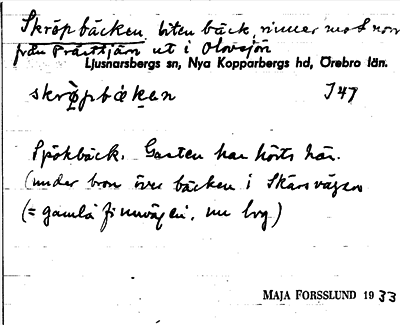 Skröpbäcken, liten bäck rinner mot norr
från Prästtjärn ut i Olovsjön
Ljusnarsbergs sn, Nya Kopparbergs hd, Örebro län.
skrö̀pbäkən I47
Spökbäck. Gasten har hörts här.
(under bron över bäcken i Skärsvägen
(= gamla finnvägen, nu lvg)
MAJA FORSSLUND 1933